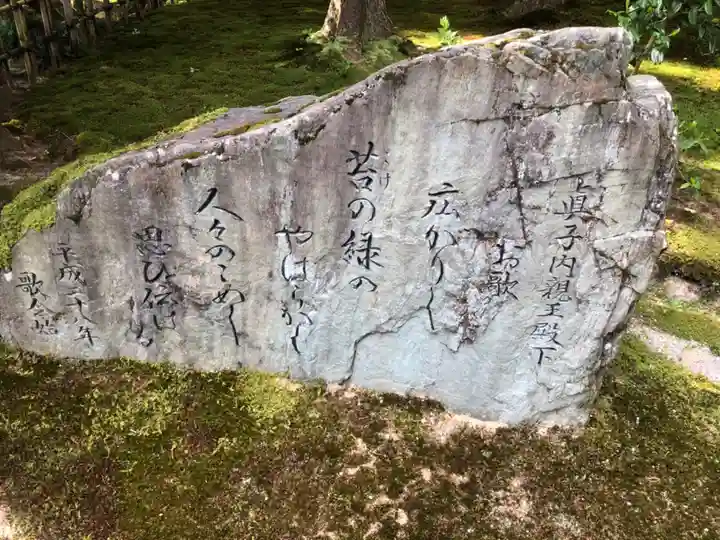 眞子内親王殿下
お歌
広がりし
苔の緑の
こけ
やはらかく
人々のこめし
思ひ伝はる
平成二十八年
歌会始